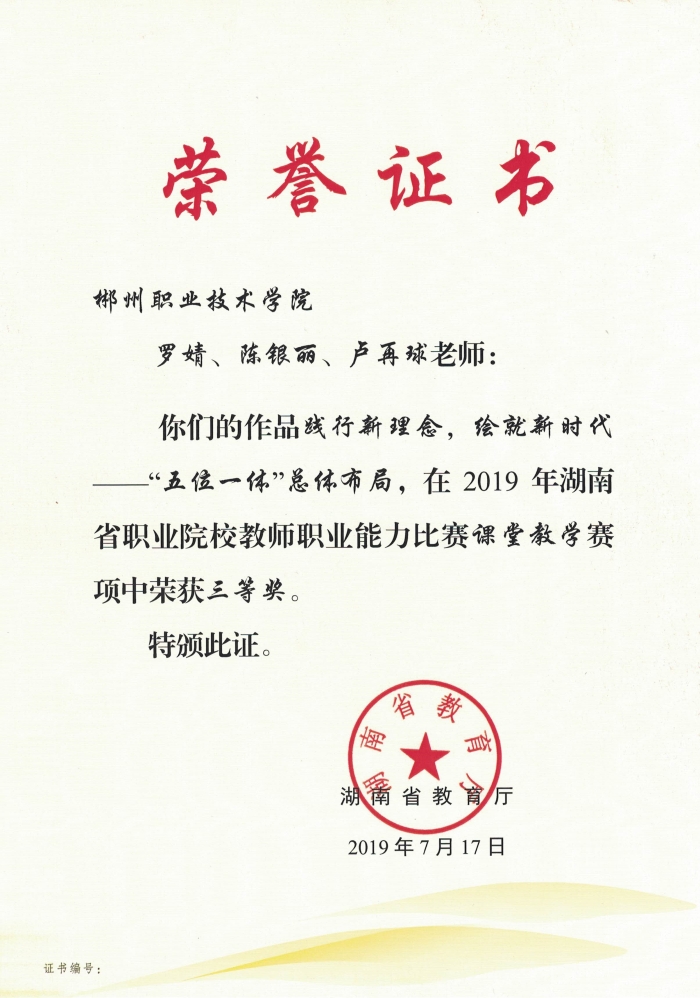 荣誉证书
郴州职业技术学院
罗婧、陈银丽、卢再球老师：
你们的作品践行新理念，绘就新时代
——“五位一体”总体布局，在 2019 年湖南
省职业院校教师职业能力比赛课堂教学赛
项中荣获三等奖。
特颁此证。
湖南省教育厅
湖南省教育厅
2019年7月17日
证书编号：